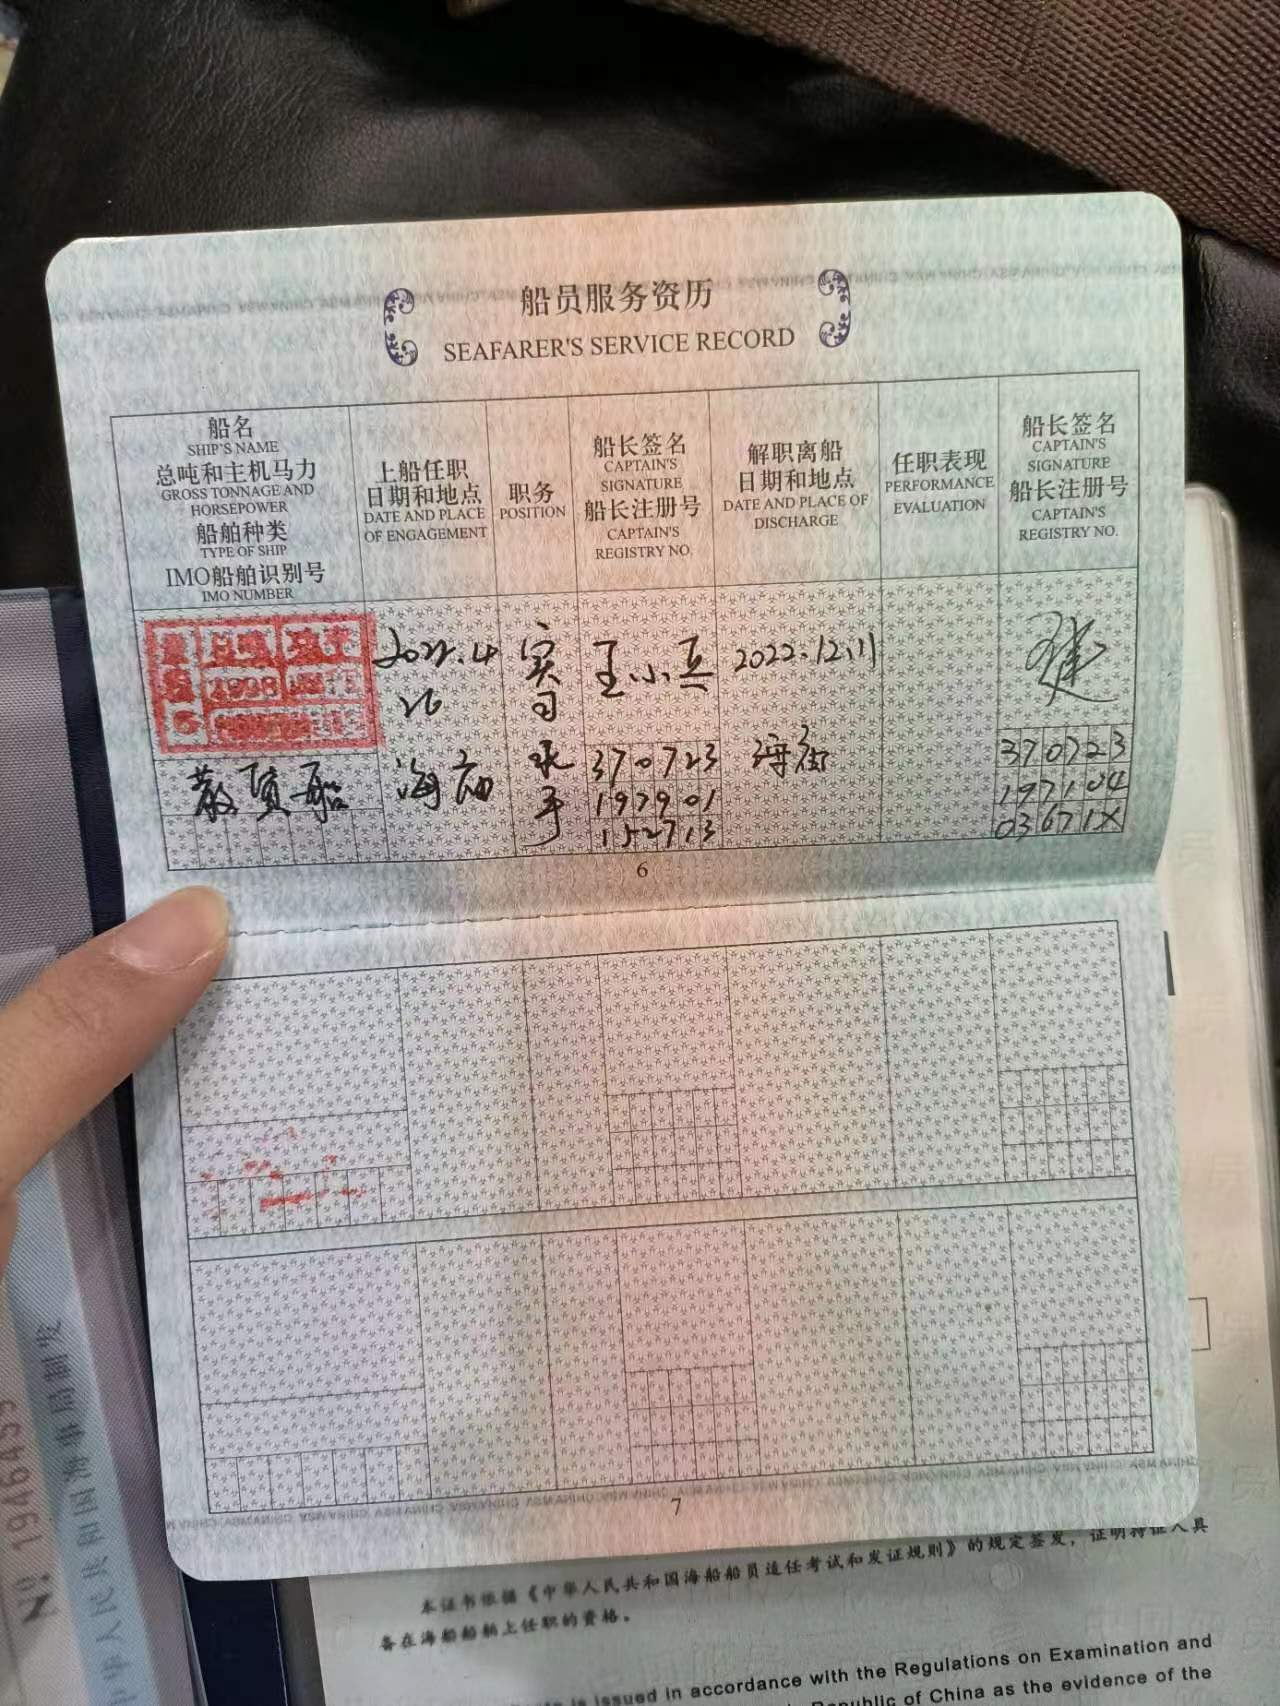 船员服务资历
SEAFARER'S SERVICE RECORD
船名
SHIP'S NAME
总吨和主机马力
GROSS TONNAGE AND
HORSEPOWER
船舶种类
TYPE OF SHIP
IMO船舶识别号
IMO NUMBER
上船任职
日期和地点
DATE AND PLACE
OF ENGAGEMENT
职务
POSITION
船长签名
CAPTAIN'S
SIGNATURE
船长注册号
CAPTAIN'S
REGISTRY NO.
解职离船
日期和地点
DATE AND PLACE OF
DISCHARGE
任职表现
PERFORMANCE
EVALUATION
船长签名
CAPTAIN'S
SIGNATURE
船长注册号
CAPTAIN'S
REGISTRY NO.
总吨
1998
散货船
2022.4
26
海
实
习
水
手
王小兵
370723
197901
152713
2022.12.11
370723
197104
03671X
6
7
№ 1946455
中华人民共和国海事局制发
本证书依据《中华人民共和国海船船员适任考试和发证规则》的规定签发，证明持证人具
备在海船船舶上任职的资格。
is issued in accordance with the Regulations on Examination and
Republic of China as the evidence of the